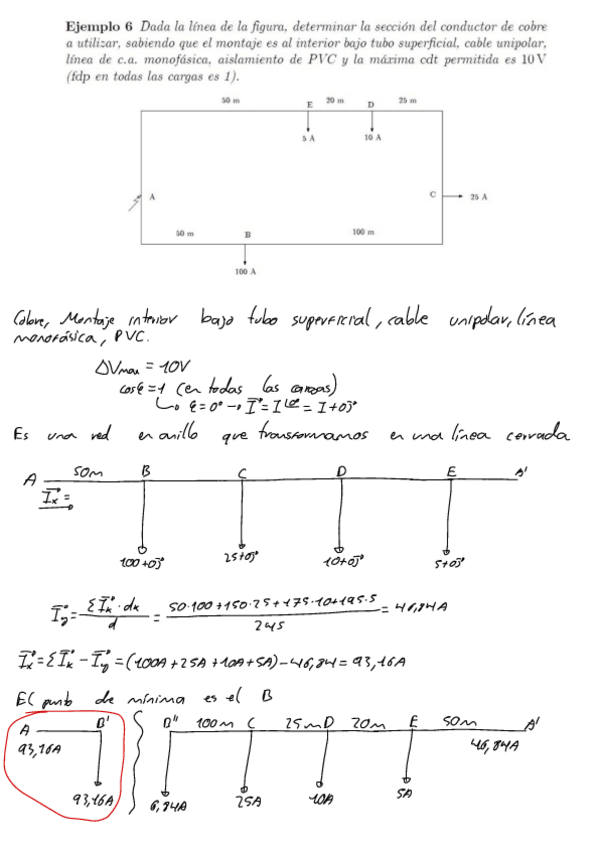 Ejemplo 6 Dada la línea de la figura, determinar la sección del conductor de cobre
a utilizar, sabiendo que el montaje es al interior bajo tubo superficial, cable unipolar,
línea de c.a. monofásica, aislamiento de PVC y la máxima cdt permitida es 10 V
(fdp en todas las cargas es 1).
50 m E 20 m D 25 m
5 A 10 A
A C 25 A
50 m B 100 m
100 A
Cobre, Montaje interior bajo tubo superficial, cable unipolar, línea
monofásica, PVC.
ΔVmax = 10V
cosφ = 1 (en todas las cargas)
↳ φ = 0° → I⃗ = I∠φ = I + 0j
Es una red en anillo que transformamos en una línea cerrada
A 50m B C D E A'
I⃗x =
100+0j 25+0j 10+0j 5+0j
I⃗y = ΣI⃗k · dk / d = 50·100+150·25+175·10+195·5 / 245 = 46,84A
I⃗x = ΣI⃗k - I⃗y = (100A + 25A + 10A + 5A) - 46,84 = 93,16A
El punto de mínima es el B
A B' B'' 100m C 25m D 20m E 50m A'
93,16A 46,84A
93,16A 6,84A 25A 10A 5A